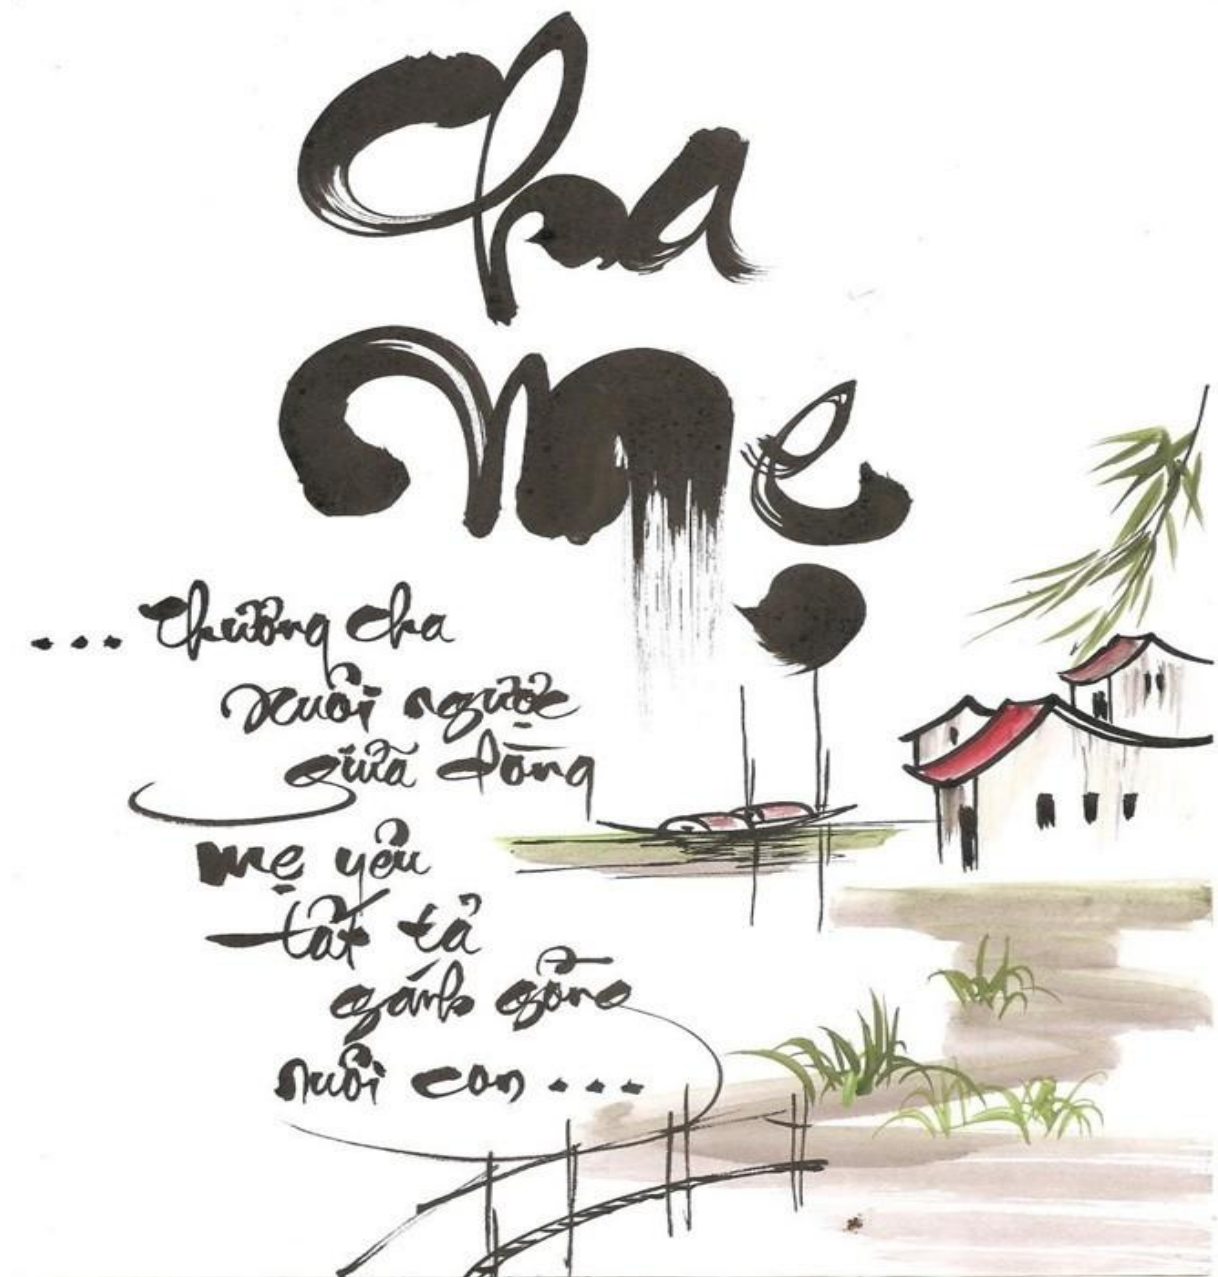 Cha
Mẹ
... Thương cha
xuôi ngược
giữa dòng
mẹ yêu
tất tả
gánh gồng
nuôi con ...